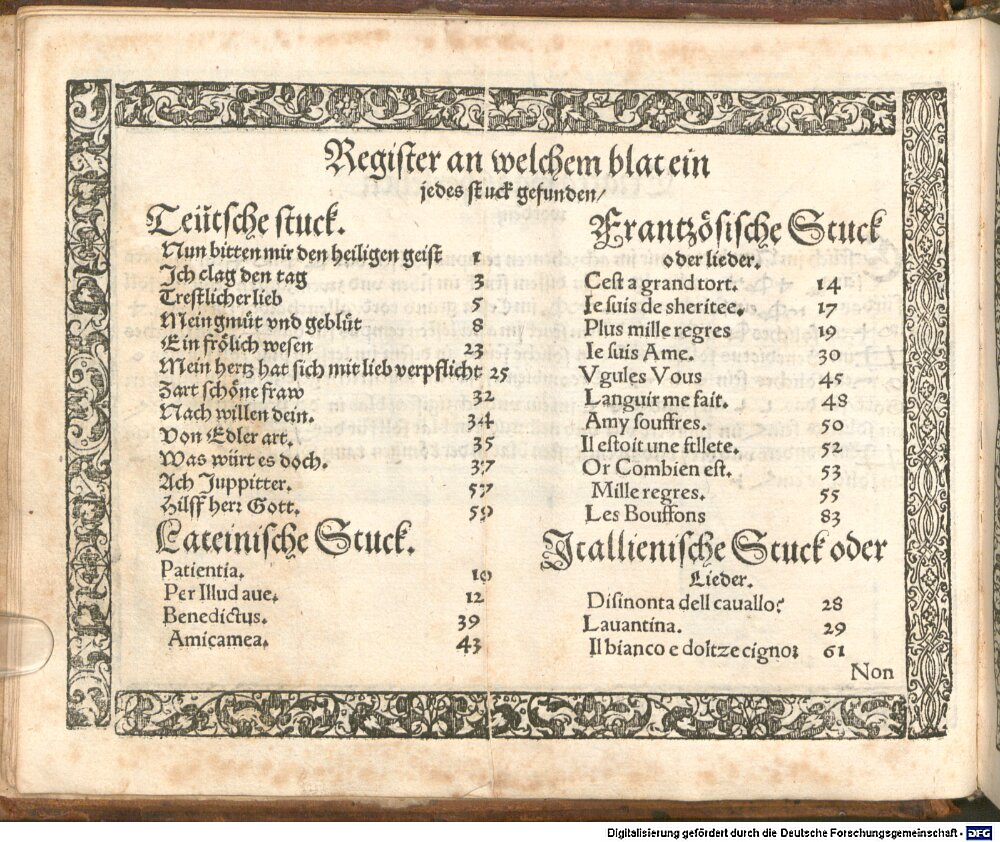 Register an welchem blat ein
jedes stuck gefunden/
Teütsche stuck.
Nun bitten mir den heiligen geist 1
Ich clag den tag 3
Trestlicher lieb 5
Mein gmüt vnd geblüt 8
Ein frölich wesen 23
Mein hertz hat sich mit lieb verpflicht 25
Zart schöne fraw 32
Nach willen dein. 34
Von Edler art. 35
Was würt es doch. 37
Ach Juppitter. 57
Hilff herr Gott. 59
Lateinische Stuck.
Patientia. 10
Per Illud aue. 12
Benedictus. 39
Amicamea. 43
Frantzösische Stuck
oder lieder.
Cest a grand tort. 14
Ie suis de sheritee. 17
Plus mille regres 19
Ie suis Ame. 30
Vgules Vous 45
Languir me fait. 48
Amy souffres. 50
Il estoit une fillete. 52
Or Combien est. 53
Mille regres. 55
Les Bouffons 83
Itallienische Stuck oder
Lieder.
Disinonta dell cauallo: 28
Lauantina. 29
Il bianco e doltze cigno: 61
Non
Digitalisierung gefördert durch die Deutsche Forschungsgemeinschaft - DFG